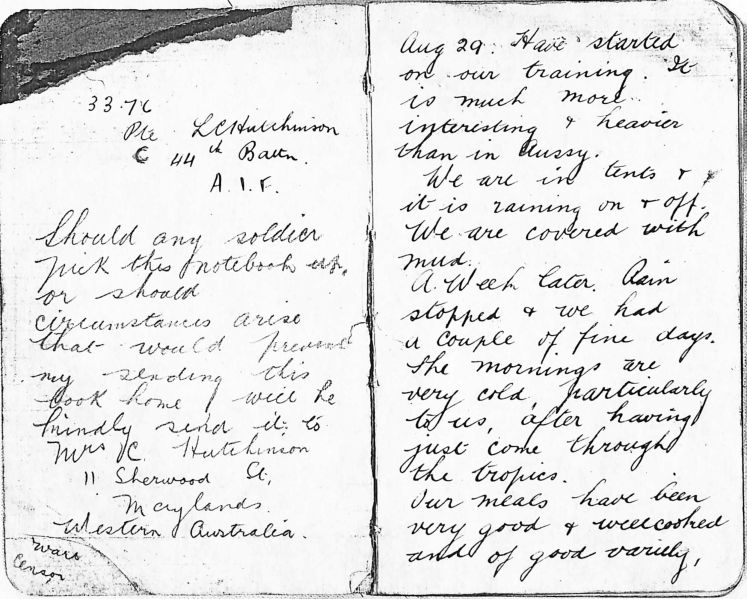 33.76
Pte L C Hutchinson
C 44th Battn.
A.I.F.
Should any soldier
pick this notebook up,
or should
circumstances arise
that would prevent
my sending this
book home, will he
kindly send it to
Mrs C. Hutchinson
11 Sherwood St,
Maylands.
Western Australia.
Censor
Aug 29. Have started
on our training. It
is much more
interesting & heavier
than in Aussy.
We are in tents &
it is raining on & off.
We are covered with
mud.
A. Week later. Rain
stopped & we had
a couple of fine days.
The mornings are
very cold, particularly
to us, after having
just come through
the tropics.
Our meals have been
very good & wellcooked
and of good variety,